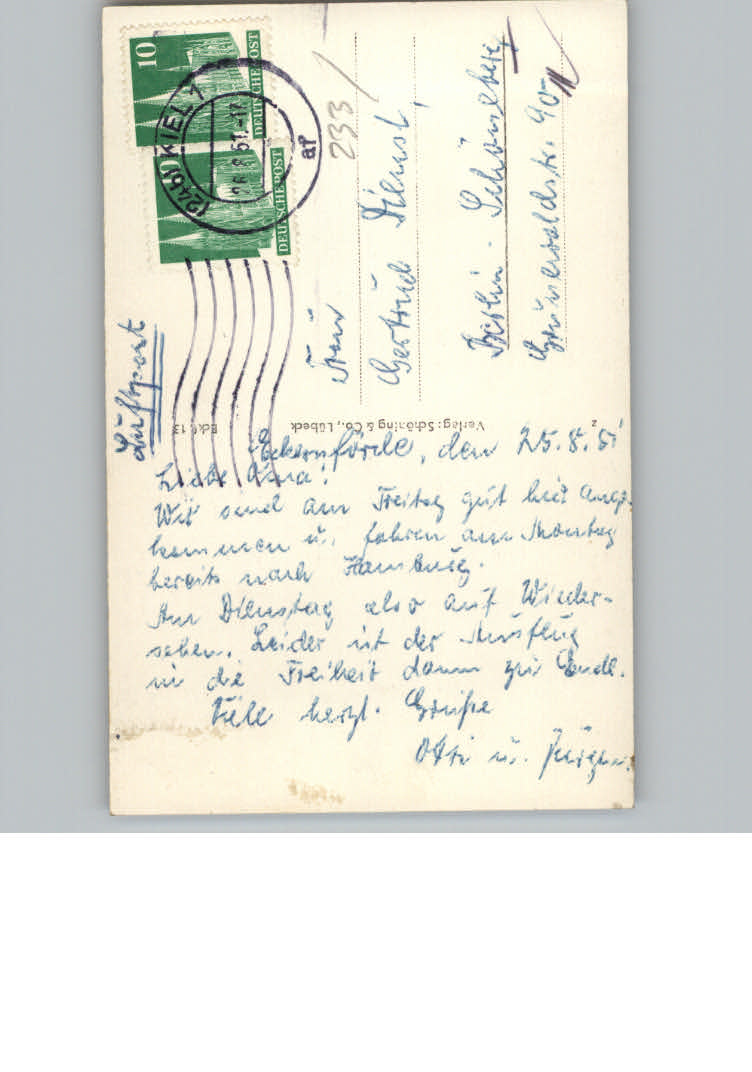 10
DEUTSCHE POST
10
DEUTSCHE POST
(24b) KIEL 1
26.8.51.-17
af
233
Luftpost
Frau
Gertrud Dienst,
Berlin - Schöneberg
Grunewaldstr. 90
Verlag: Schöning & Co., Lübeck
Eckf. 13
z
Eckernförde, den 25.8.51
Liebe Oma!
Wir sind am Freitag gut hier ange-
kommen u. fahren am Montag
bereits nach Hamburg.
Am Dienstag also auf Wieder-
sehen. Leider ist der Ausflug
in die Freiheit dann zu Ende.
Viele herzl. Grüße
Otti u. Jürgen